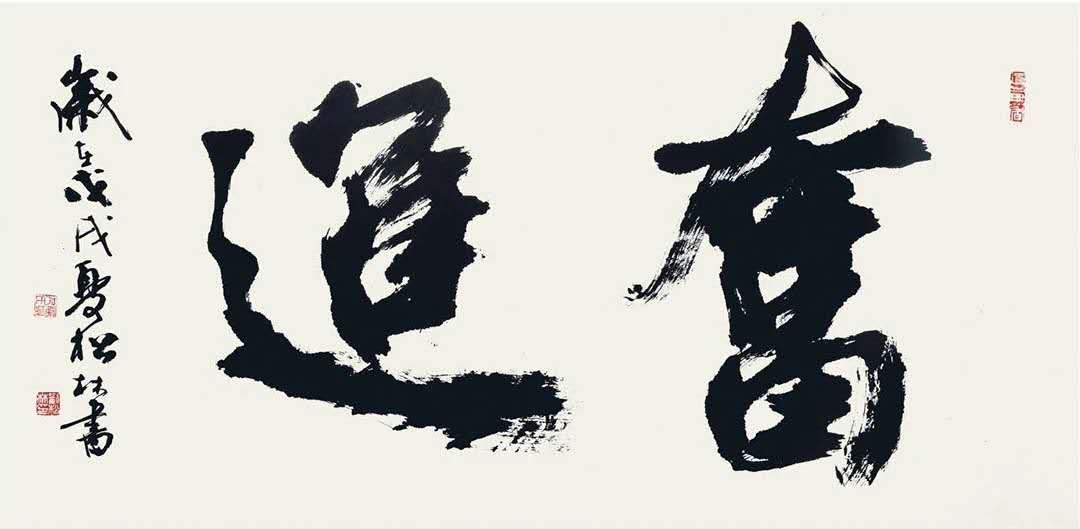 奮進
歲在戊戌夏松林書